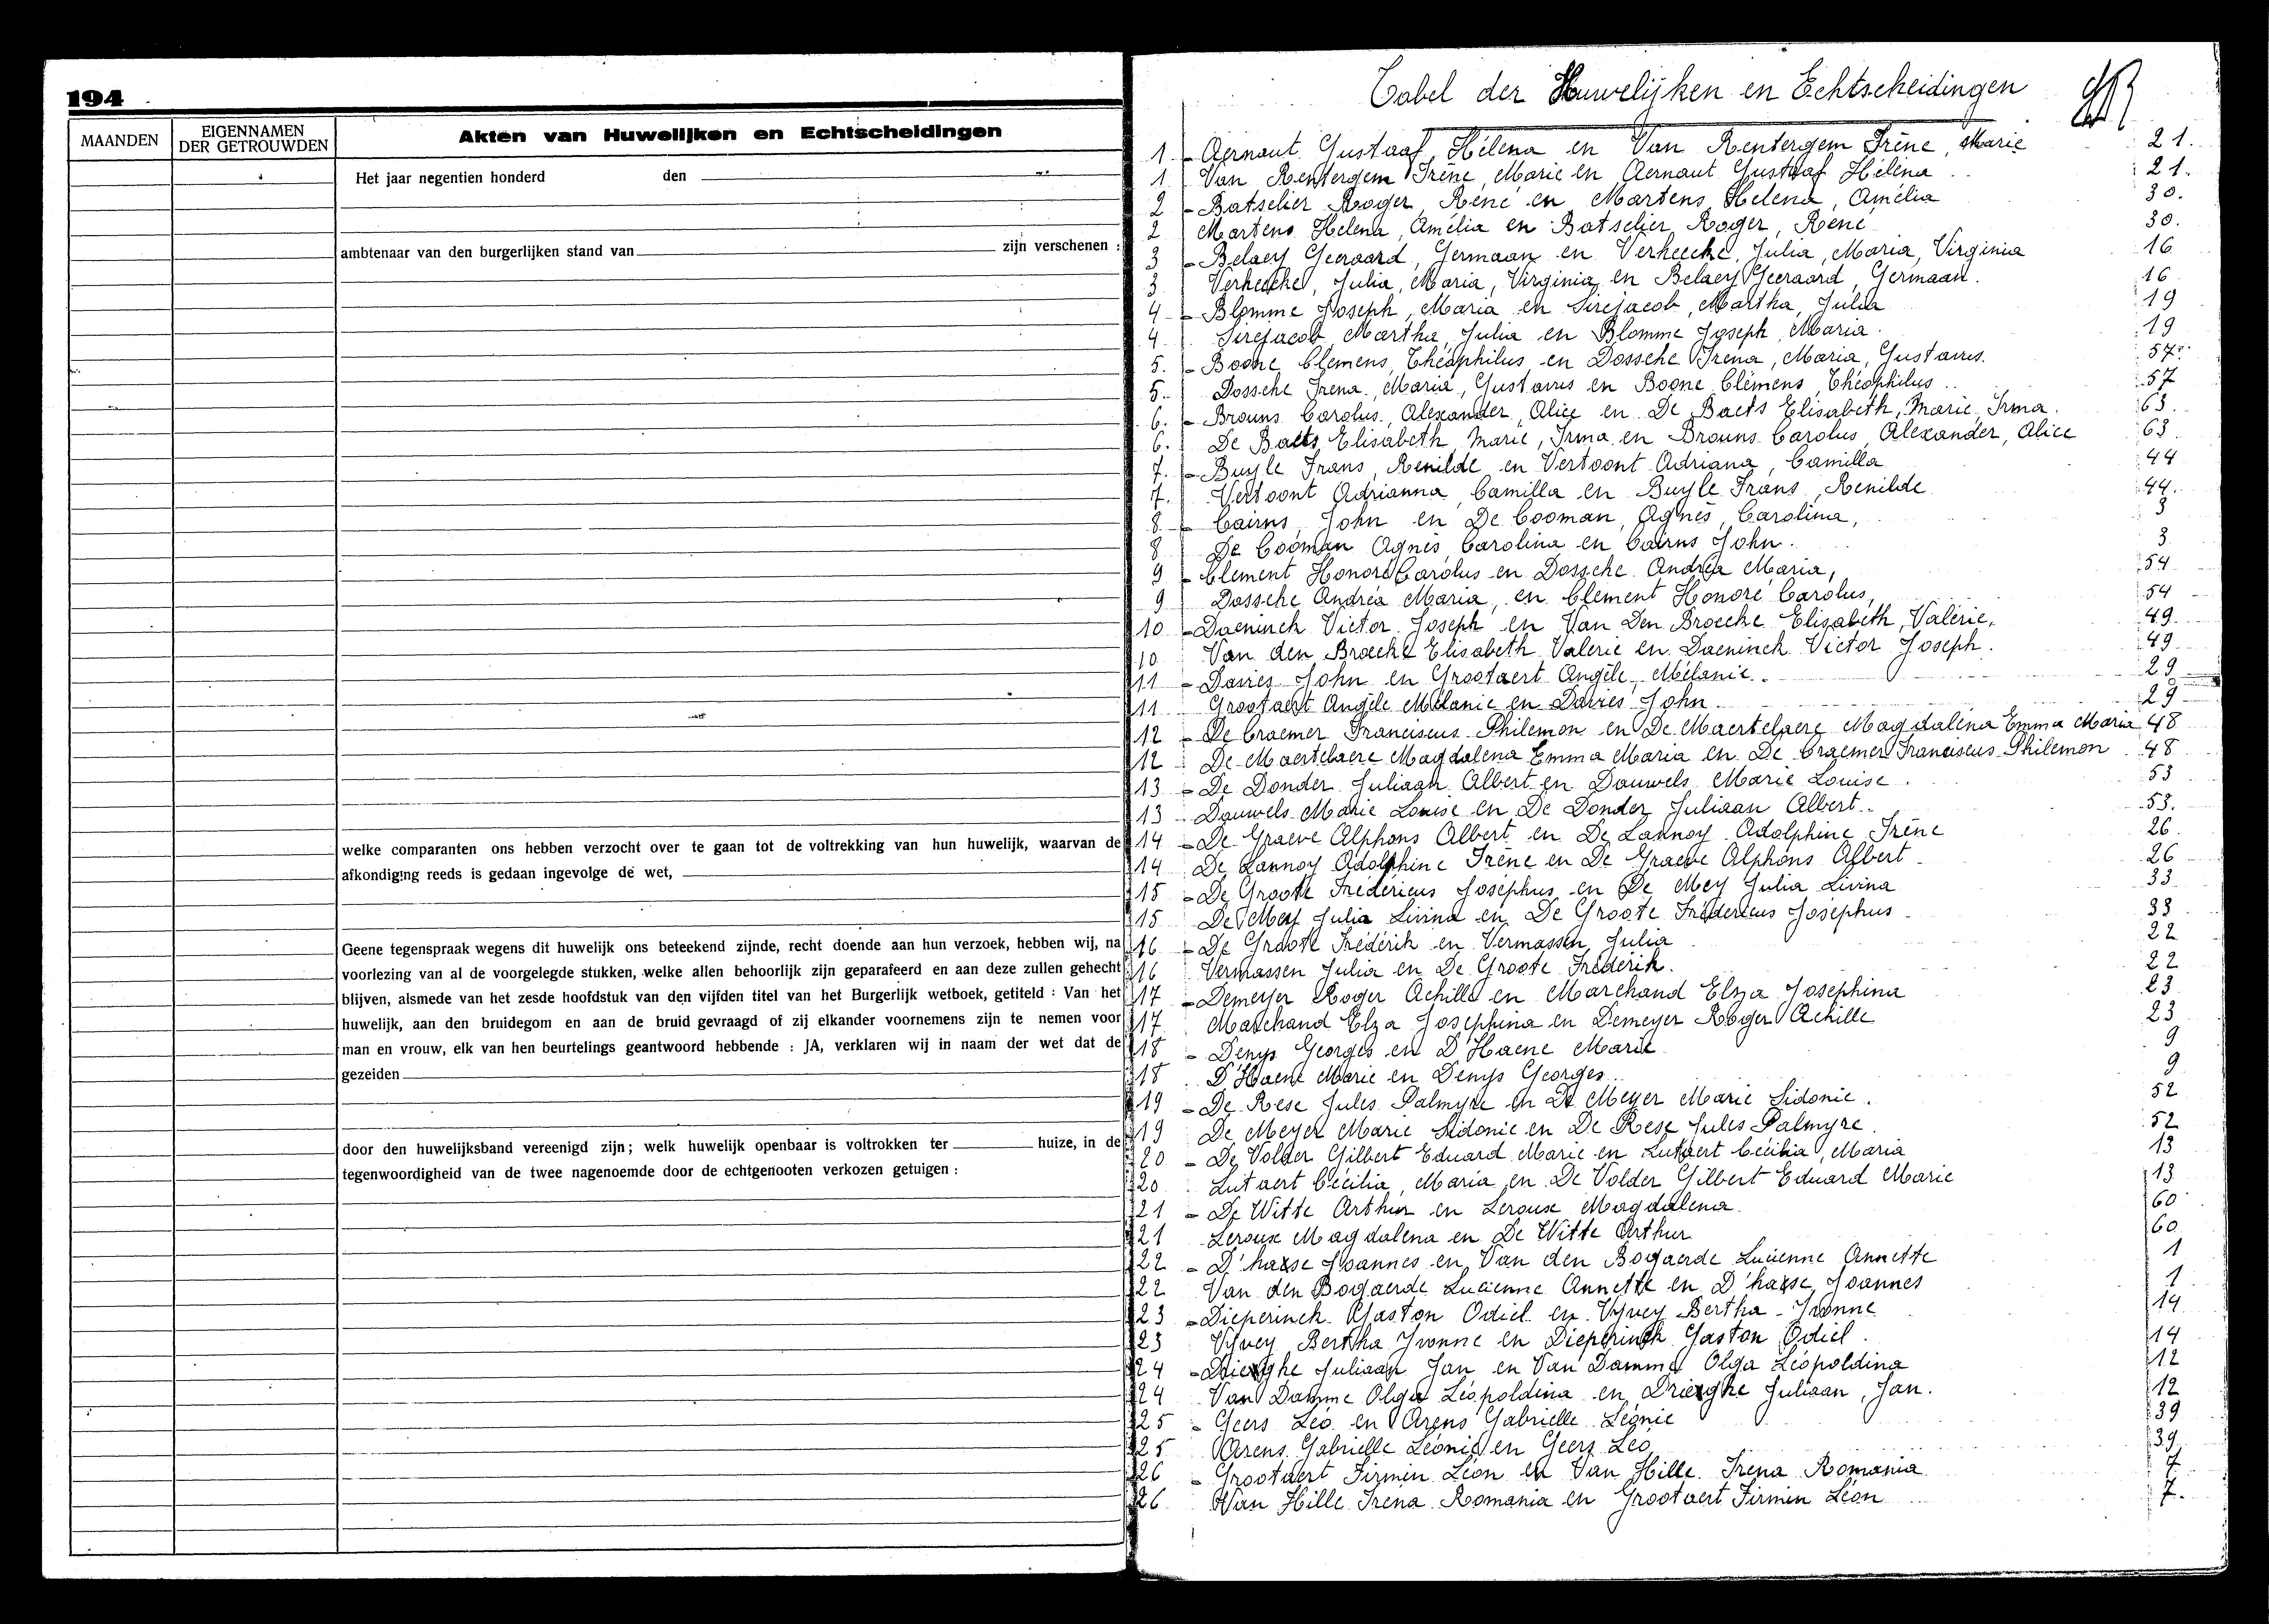 194
MAANDEN
EIGENNAMEN
DER GETROUWDEN
Akten van Huwelijken en Echtscheidingen
Het jaar negentien honderd den
ambtenaar van den burgerlijken stand van zijn verschenen :
welke comparanten ons hebben verzocht over te gaan tot de voltrekking van hun huwelijk, waarvan de
afkondiging reeds is gedaan ingevolge de wet,
Geene tegenspraak wegens dit huwelijk ons beteekend zijnde, recht doende aan hun verzoek, hebben wij, na
voorlezing van al de voorgelegde stukken, welke allen behoorlijk zijn geparafeerd en aan deze zullen gehecht
blijven, alsmede van het zesde hoofdstuk van den vijfden titel van het Burgerlijk wetboek, getiteld : Van het
huwelijk, aan den bruidegom en aan de bruid gevraagd of zij elkander voornemens zijn te nemen voor
man en vrouw, elk van hen beurtelings geantwoord hebbende : JA, verklaren wij in naam der wet dat de
gezeiden
door den huwelijksband vereenigd zijn; welk huwelijk openbaar is voltrokken ter huize, in de
tegenwoordigheid van de twee nagenoemde door de echtgenooten verkozen getuigen :
Tabel der Huwelijken en Echtscheidingen
1. - Aernaut Gustaaf, Hélena en Van Rentergem Irène, Marie 21.
1 Van Rentergem Irène, Marie en Aernaut Gustaaf Hélena 21.
2 - Batselier Roger, René en Martens Helena, Amélia 30.
2 Martens Helena, Amélia en Batselier Roger, René 30.
3 - Belaey Geeraard, Germaan en Verheecke, Julia, Maria, Virginia 16
3 Verheecke, Julia, Maria, Virginia en Belaey Geeraard, Germaan. 16
4 - Blomme Joseph, Maria en Sirejacob, Martha, Julia 19
4 Sirejacob, Martha, Julia en Blomme Joseph, Maria. 19
5. - Boone Clemens, Théophilus en Dossche Irena, Maria, Gustavus. 57.
5. Dossche Irena, Maria, Gustavus en Boone Clémens, Théophilus.. 57
6. - Brouns Carolus, Alexander, Alice en De Baets Elisabeth, Marie, Irma. 63.
6. De Baets Elisabeth, Marie, Irma en Brouns Carolus, Alexander, Alice 63
7. - Buyle Frans, Renilde en Vertoont Adriana, Camilla 44
7. Vertoont Adrianna, Camilla en Buyle Frans, Renilde 44.
8 - Cairns, John en De Cooman, Agnès, Carolina, 3
8 De Cooman Agnès, Carolina en Cairns John. 3
9 - Clement Honoré Carolus en Dossche Andréa Maria, 54
9 Dossche Andréa Maria, en Clement Honoré Carolus, 54
10 - Daeninck Victor Joseph en Van Den Broecke Elisabeth, Valérie. 49.
10 Van den Broecke Elisabeth Valerie en Daeninck Victor Joseph. 49
11 - Davies John en Grootaert Angèle, Mélanie. 29
11 Grootaert Angèle Mélanie en Davies John 29
12 - De Craemer Franciscus Philemon en De Maertelaere Magdaléna Emma Maria 48
12 De Maertelaere Magdalena Emma Maria en De Craemer Franciscus Philemon 48
13 - De Donder Juliaan Albert en Dauwels Marie Louise. 53
13 Dauwels Marie Louise en De Donder Juliaan Albert.. 53.
14 - De Graeve Alphons Albert en De Lannoy Adolphine Irène 26.
14 De Lannoy Adolphine Irène en De Graeve Alphons Albert 26
15 - De Groote Frédéricus Joséphus en De Mey Julia Livina 33
15 De Mey Julia Livina en De Groote Frédericus Joséphus 33
16 - De Groote Frédérik en Vermassen Julia 22
16 Vermassen Julia en De Groote Fréderik. 22
17 - Demeyer Roger Achille en Marchand Elza Josephina 23
17 Marchand Elza Josephina en Demeyer Roger Achille 23
18 - Denys Georges en D'Haene Marie 9
18 D'Haene Marie en Denys Georges 9
19 - De Rese Jules Palmyre en De Meyer Marie Sidonie. 52
19 De Meyer Marie Sidonie en De Rese Jules Palmyre. 52
20 - De Volder Gilbert Eduard Marie en Lutaert Cécilia, Maria 13
20 Lutaert Cécilia, Maria en De Volder Gilbert Eduard Marie 13
21 - De Witte Arthur en Leroux Magdalena 60
21 Leroux Magdalena en De Witte Arthur 60
22 - D'haese Joannes en Van den Bogaerde Lucienne Annette 1
22 Van den Bogaerde Lucienne Annette en D'haese, Joannes 1
23 - Dieperinck Gaston Odiel en Vyvey Bertha Yvonne 14
23 Vyvey Bertha Yvonne en Dieperinck Gaston Odiel. 14
24 - Drieghe Juliaan Jan en Van Damme Olga Léopoldina 12
24 Van Damme Olga Léopoldina en Drieghe Juliaan, Jan. 12
25 - Geers Léo en Arens Gabrielle Léonie 39
25 Arens Gabrielle Léonie en Geers Léo 39
26 - Grootaert Firmin Léon en Van Hille Irena Romania 7
26. Van Hille Iréna Romania en Grootaert Firmin Léon 7.